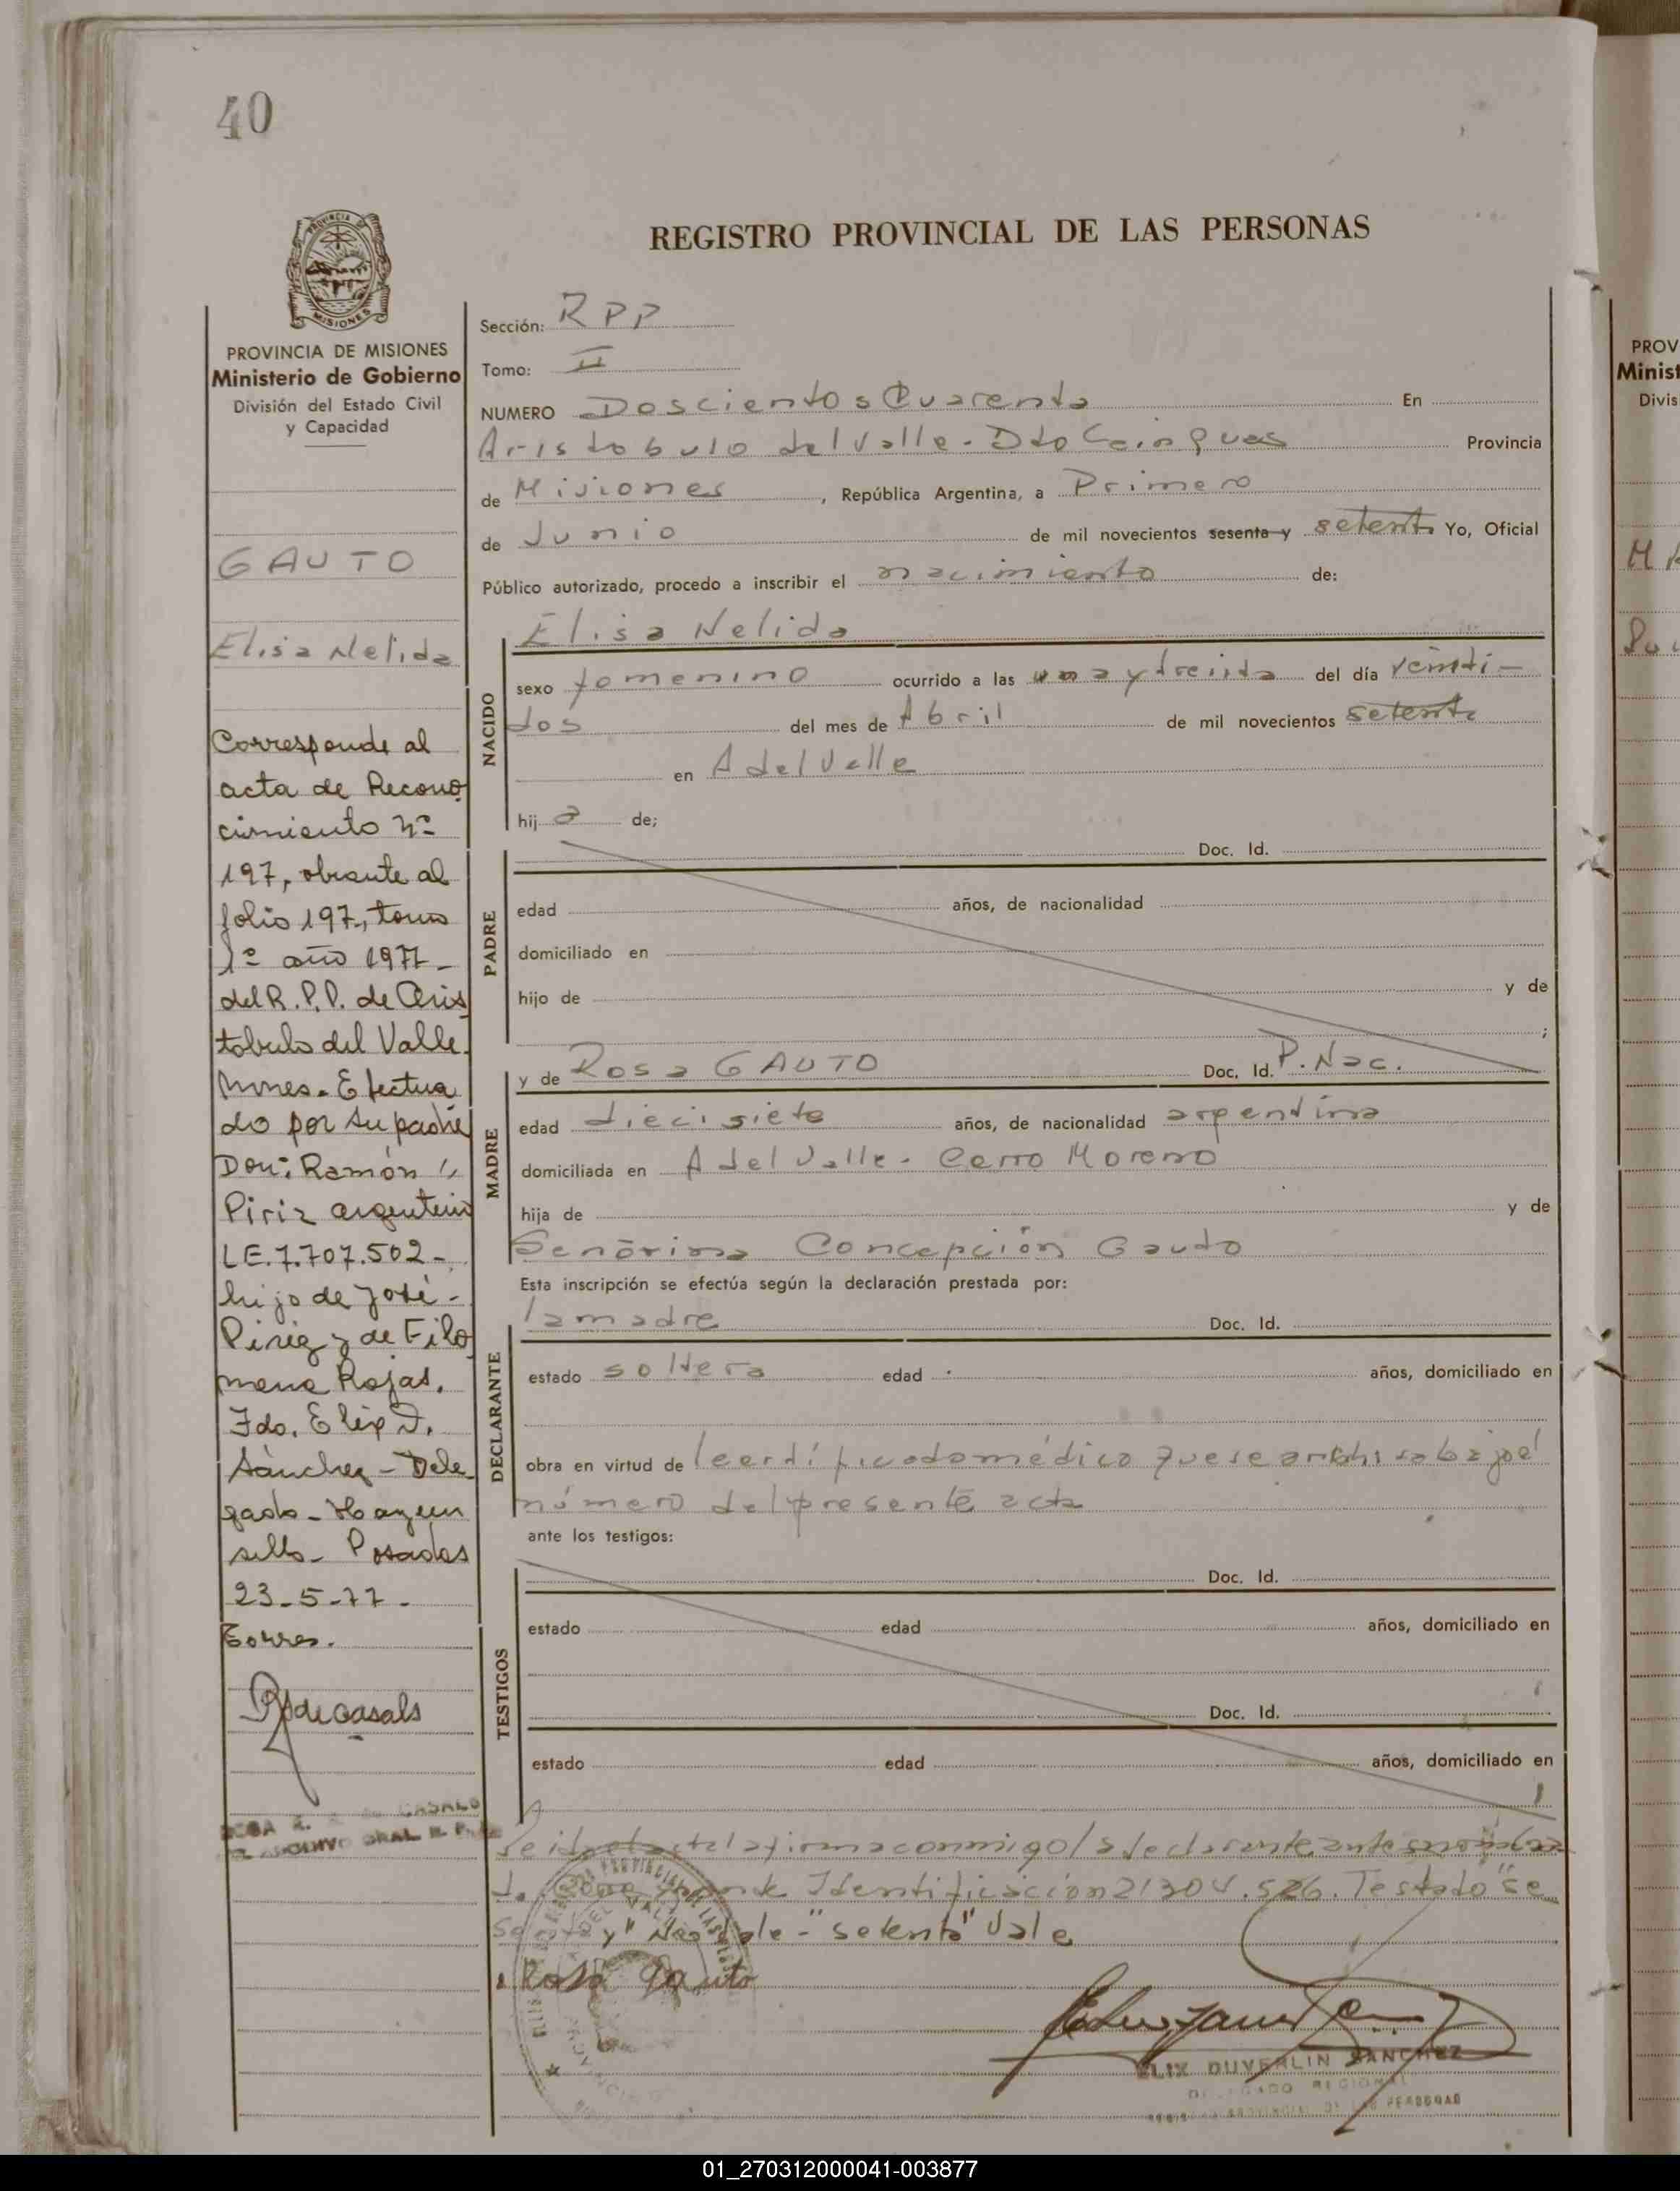 40
PROVINCIA
MISIONES
REGISTRO PROVINCIAL DE LAS PERSONAS
PROVINCIA DE MISIONES
Ministerio de Gobierno
División del Estado Civil
y Capacidad
GAUTO
Elisa Nelida
Corresponde al
acta de Recono
cimiento Nº
197, obrante al
folio 197, tomo
1º año 1977-
del R.P.P. de Aris
tobulo del Valle.
Mnes. Efectua
do por su padre
Don: Ramón
Piriz argentino
LE. 7.707.502-
hijo de José-
Piriz y de Filo
mena Rojas.
Fdo. Elix D.
Sánchez - Dele
gado - Hay un
sello - Posadas
23-5-77-
Torres.
Sección: RPP
Tomo: II
NUMERO Doscientos Cuarenta En
Aristobulo del Valle - Dto Cainguas Provincia
de Misiones, República Argentina, a Primero
de Junio de mil novecientos sesenta y setenta Yo, Oficial
Público autorizado, procedo a inscribir el nacimiento de:
NACIDO
Elisa Nelida
sexo femenino ocurrido a las una y treinta del día veinti-
dos del mes de Abril de mil novecientos setenta
en A del Valle
hij a de;
PADRE
Doc. Id.
edad años, de nacionalidad
domiciliado en
hijo de y de
;
MADRE
y de Rosa GAUTO Doc. Id. P. Nac.
edad diecisiete años, de nacionalidad argentina
domiciliada en A del Valle - Cerro Moreno
hija de y de
Señorina Concepción Gauto
Esta inscripción se efectúa según la declaración prestada por:
DECLARANTE
la madre Doc. Id.
estado soltera edad años, domiciliado en
obra en virtud de certificado médico que se archiva bajo el
número del presente acta
ante los testigos:
TESTIGOS
Doc. Id.
estado edad años, domiciliado en
Doc. Id.
estado edad años, domiciliado en
acta la firma conmigo la declarante ante
Identificación 2130 V. 526. Testado "se
senta y" No vale - "setenta" Vale
Rosa Gauto
ELIX DUVERLIN SANCHEZ
DELEGADO REGIONAL
REGISTRO PROVINCIAL DE LAS PERSONAS
PROV
Minist
Divis
01_270312000041-003877